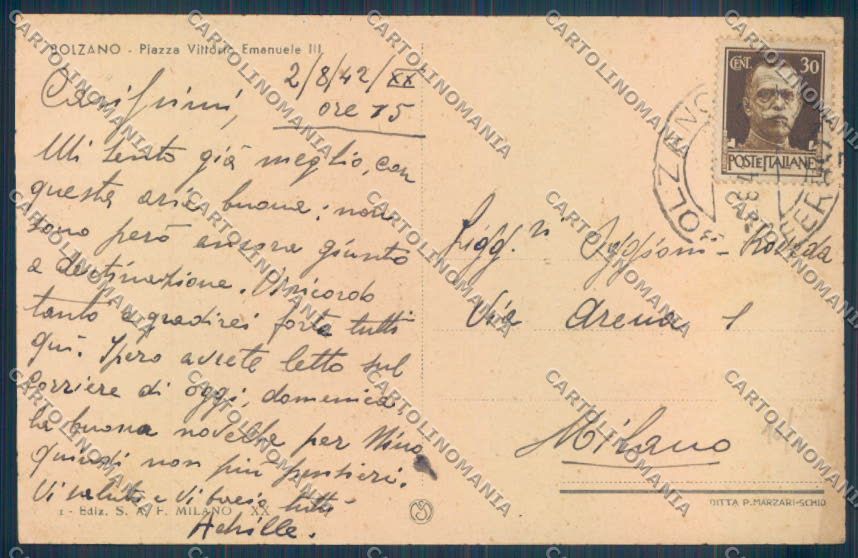 BOLZANO - Piazza Vittorio Emanuele III
2/8/42/XX
Carissimi, ore 15
Mi sento già meglio, con
questa aria buona; non
sono però ancora giunto
a destinazione. Vi ricordo
tanto e gradirei foste tutti
qui. Spero avrete letto sul
Corriere di oggi, domenica,
la buona novella per Nino
quindi non più pensieri.
Vi saluto e Vi bacio tutti
Achille.
1 - Ediz. S. A. F. MILANO XX
CENT. 30
POSTE ITALIANE
BOLZANO
FERROVIA
Sigg.ri - Roveda
Via Arena 1
Milano
DITTA P. MARZARI-SCHIO
CARTOLINOMANIA